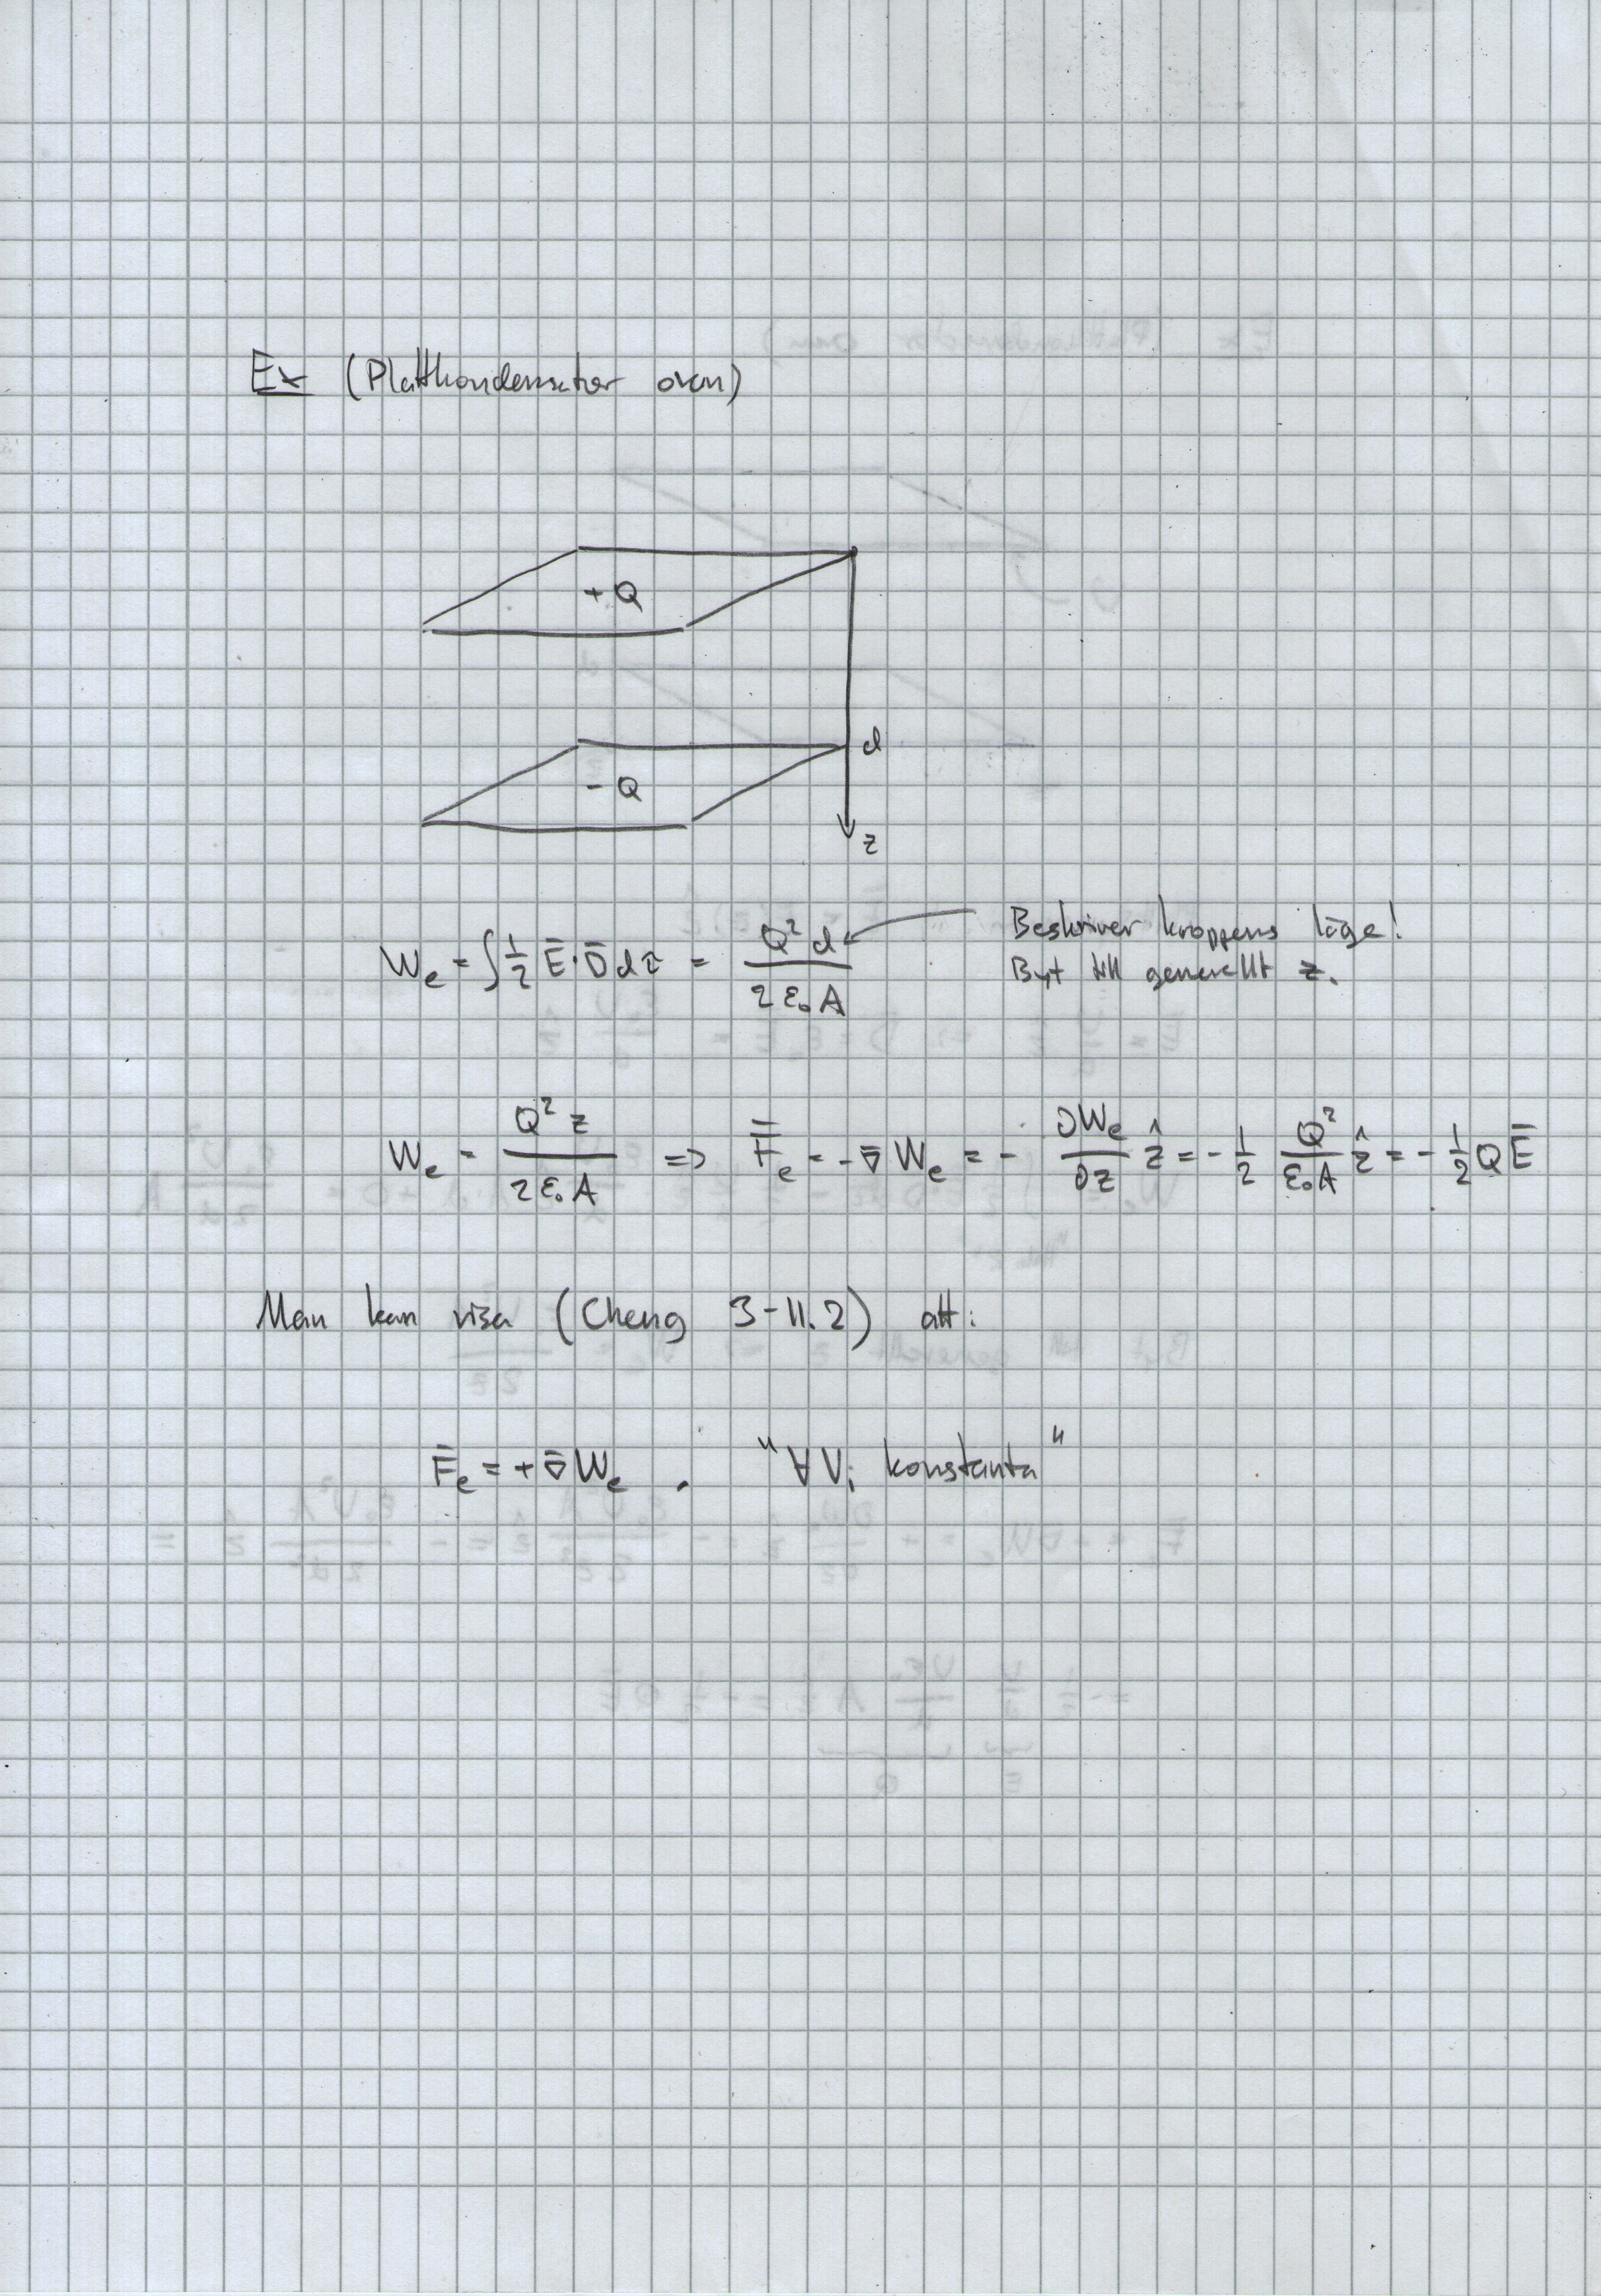 Ex (Plattkondensator ovan)
+Q
d
-Q
z
We = ∫ 1/2 Ē·D̄ dτ = Q² d / 2ε₀A
Beskriver kroppens läge!
Byt till generellt z.
We = Q² z / 2ε₀A => F̄e = -∇̄We = - ∂We/∂z ẑ = - 1/2 Q²/ε₀A ẑ = - 1/2 QĒ
Man kan visa (Cheng 3-11.2) att:
F̄e = +∇̄We . "∀Vi konstanta"